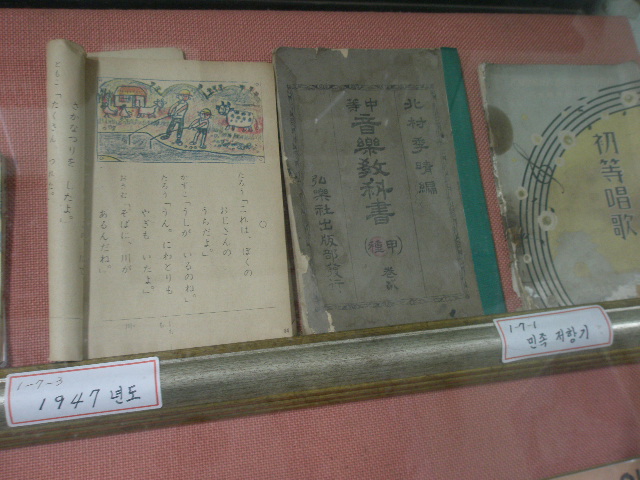 ともこ「たくさん
さかなつりを したよ。
たろう「これは、ぼくの
おじさんの
うちだよ」
かずこ「うしが いるのね。」
たろう「うん。にわとりも
やぎも いたよ。」
おさむ「そばに、川が
あるんだね。」
北村季晴編
中等
音樂教科書
甲種
巻貳
弘樂社出版部發行
初等唱歌
1-7-3
1947 년도
1-7-1
민족 저항기